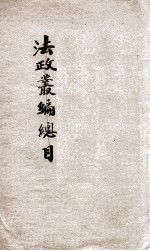 法政叢編總目